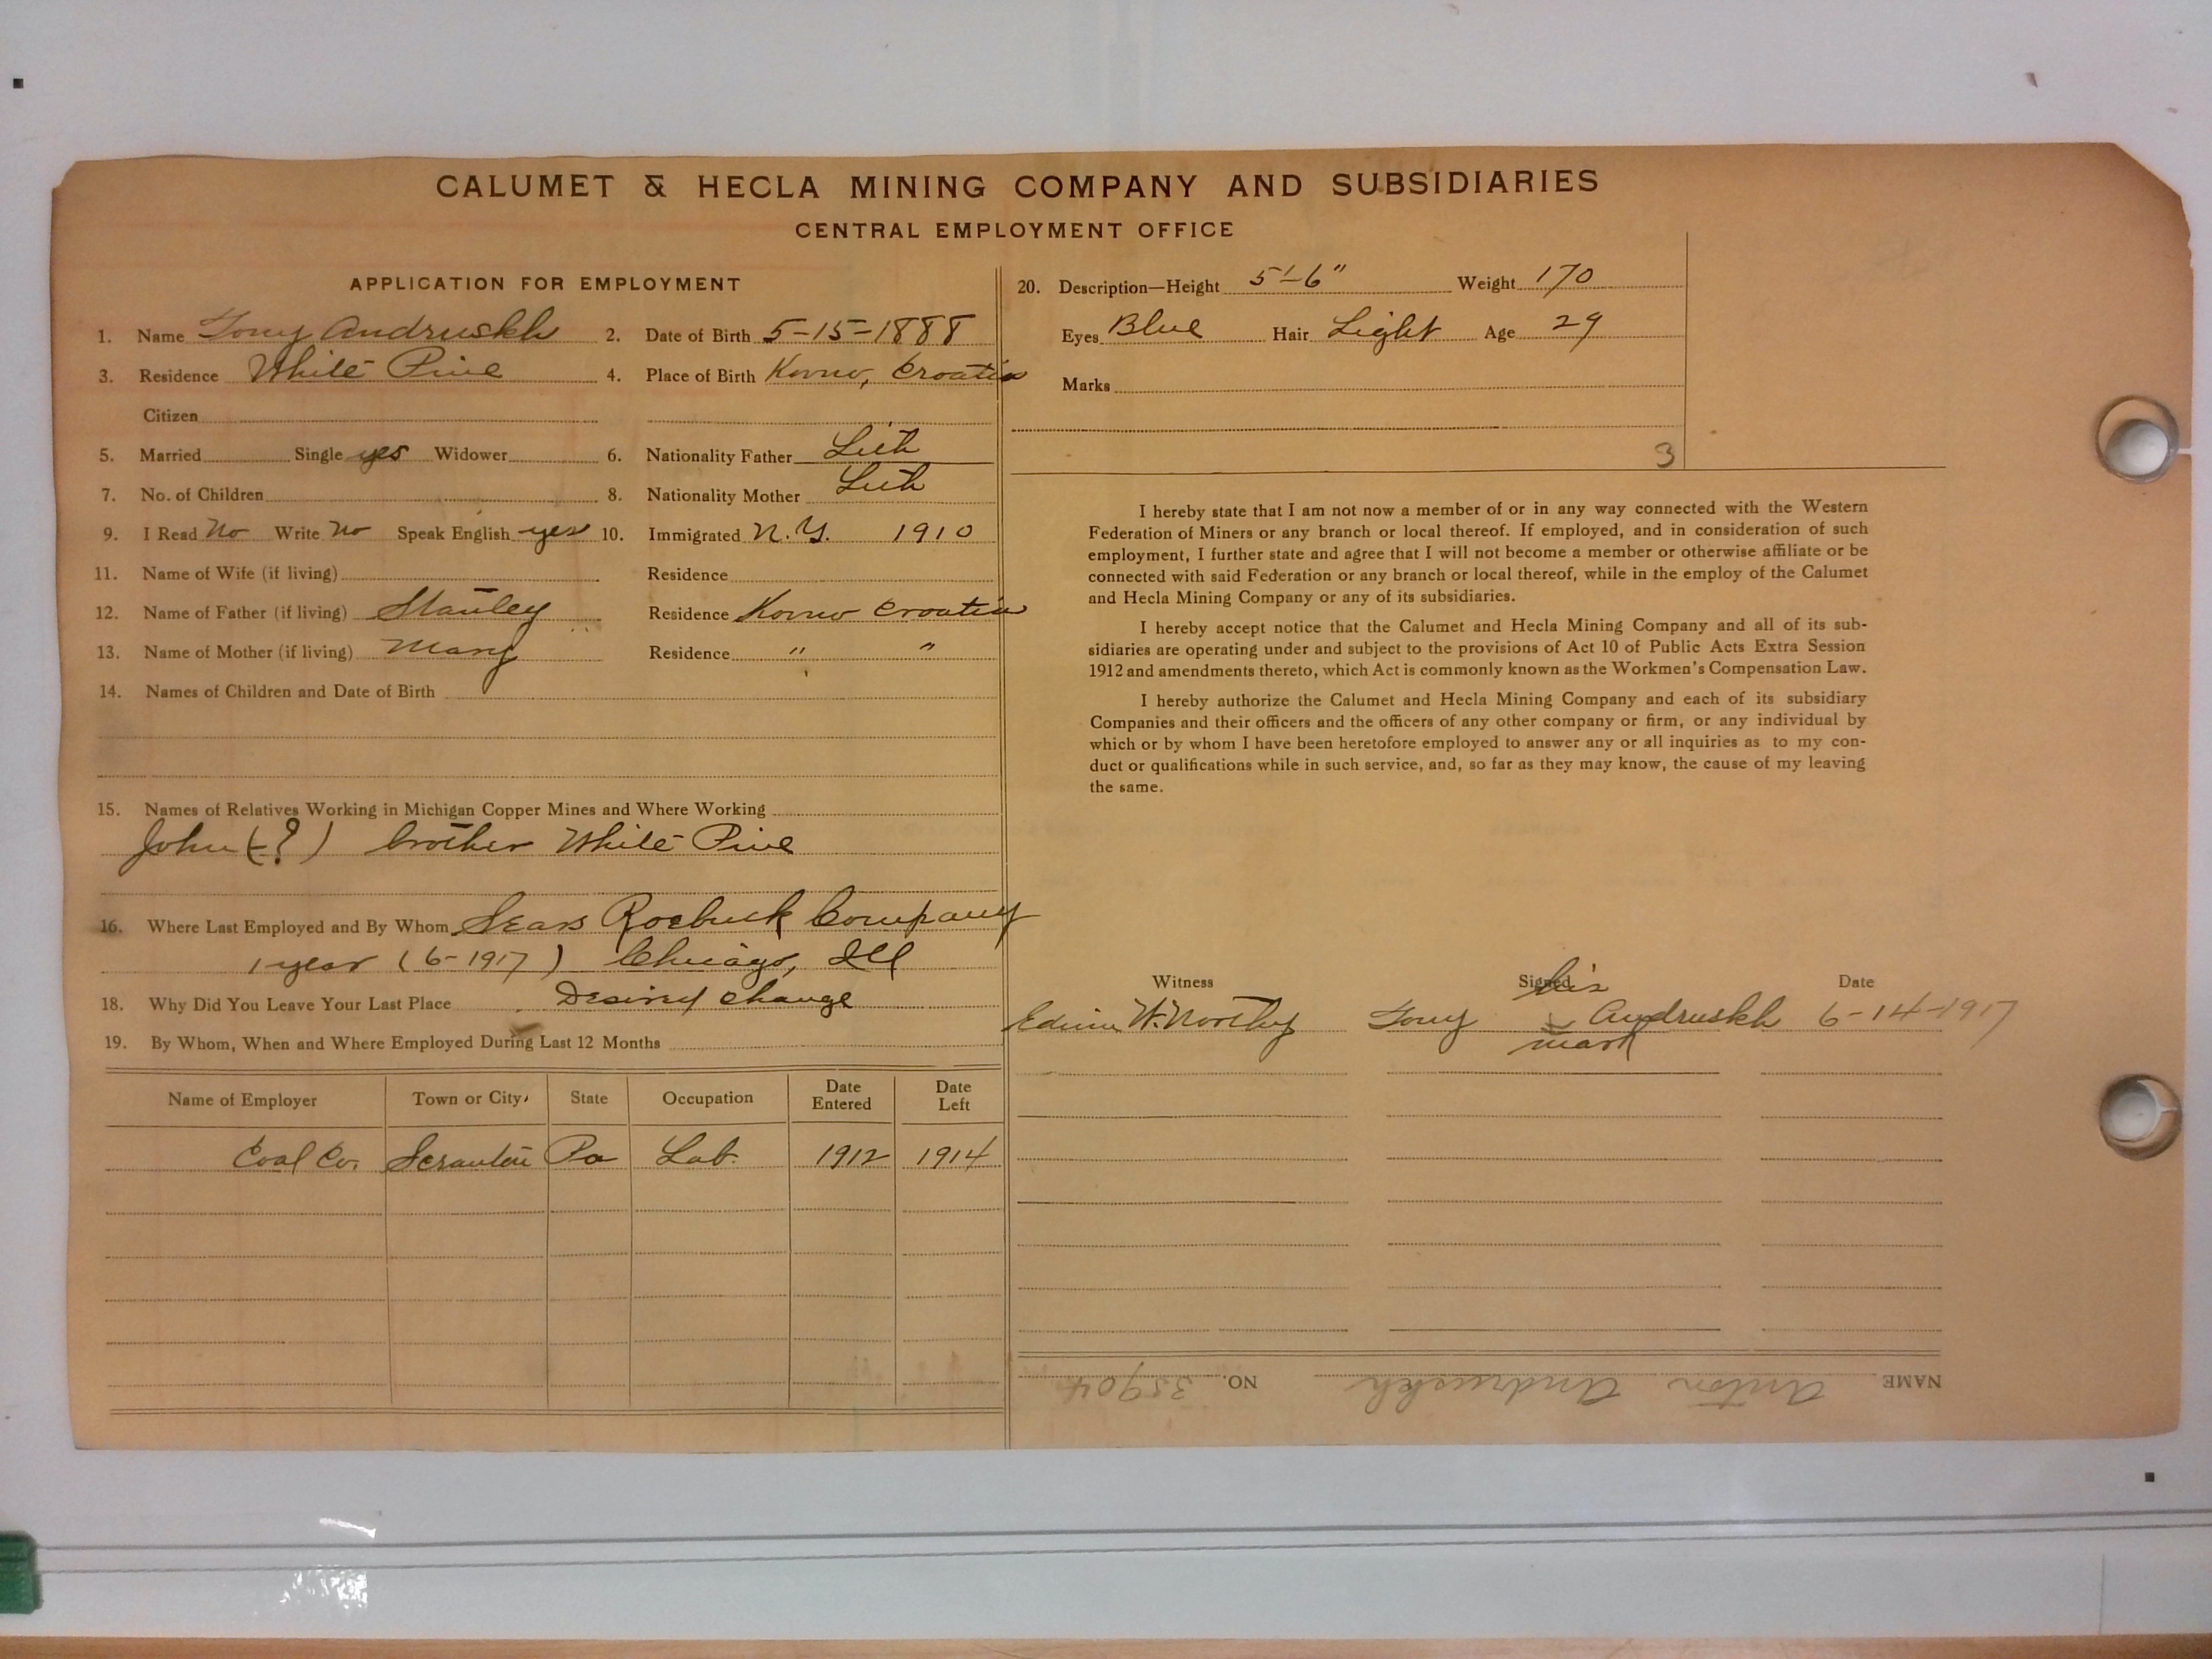 CALUMET & HECLA MINING COMPANY AND SUBSIDIARIES
CENTRAL EMPLOYMENT OFFICE
APPLICATION FOR EMPLOYMENT
1. Name Tony Andruskh 2. Date of Birth 5-15-1888
3. Residence White Pine 4. Place of Birth Kovno, Croatia
Citizen
5. Married Single yes Widower 6. Nationality Father Lith
7. No. of Children 8. Nationality Mother Lith
9. I Read No Write No Speak English yes 10. Immigrated N.Y. 1910
11. Name of Wife (if living) Residence
12. Name of Father (if living) Stanley Residence Kovno Croatia
13. Name of Mother (if living) Mary Residence " "
14. Names of Children and Date of Birth
15. Names of Relatives Working in Michigan Copper Mines and Where Working
John (-?) brother White Pine
16. Where Last Employed and By Whom Sears Roebuck Company
1 year (6-1917) Chicago, Ill
18. Why Did You Leave Your Last Place Desired change
19. By Whom, When and Where Employed During Last 12 Months
Name of Employer Town or City State Occupation Date Entered Date Left
Coal Co. Scranton Pa Lab. 1912 1914
20. Description—Height 5'-6" Weight 170
Eyes Blue Hair Light Age 29
Marks
3
I hereby state that I am not now a member of or in any way connected with the Western
Federation of Miners or any branch or local thereof. If employed, and in consideration of such
employment, I further state and agree that I will not become a member or otherwise affiliate or be
connected with said Federation or any branch or local thereof, while in the employ of the Calumet
and Hecla Mining Company or any of its subsidiaries.
I hereby accept notice that the Calumet and Hecla Mining Company and all of its sub-
sidiaries are operating under and subject to the provisions of Act 10 of Public Acts Extra Session
1912 and amendments thereto, which Act is commonly known as the Workmen's Compensation Law.
I hereby authorize the Calumet and Hecla Mining Company and each of its subsidiary
Companies and their officers and the officers of any other company or firm, or any individual by
which or by whom I have been heretofore employed to answer any or all inquiries as to my con-
duct or qualifications while in such service, and, so far as they may know, the cause of my leaving
the same.
Witness Signed Date
his
Edwin W. Northey Tony x Andruskh 6-14-1917
mark
NAME Anton Andruskh NO. 35904